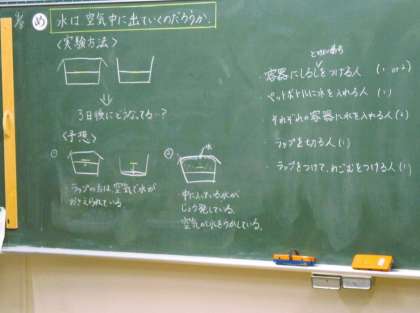 め 水は空気中に出ていくのだろうか。
〈実験方法〉
3日後にどうなってる…?
〈予想〉
①
・ラップの方は、空気で水が
おさえられている
②
水
中に入っている水が
じょう発している。
空気が水をうかしている。
・容器にしるしをつける人 (1 or 2)
・ペットボトルに水を入れる人 (1)
・それぞれの容器に水を入れる人
・ラップを切る人 (1)
・ラップをつけて、わごむをつける人 (1)